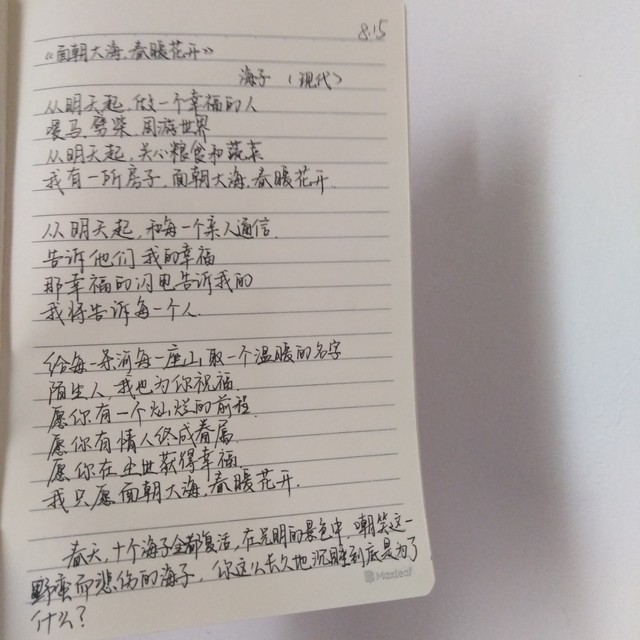 8.15
《面朝大海,春暖花开》
海子 (现代)
从明天起,做一个幸福的人
喂马,劈柴,周游世界
从明天起,关心粮食和蔬菜
我有一所房子,面朝大海,春暖花开.
从明天起,和每一个亲人通信.
告诉他们我的幸福
那幸福的闪电告诉我的
我将告诉每一个人.
给每一条河每一座山取一个温暖的名字
陌生人,我也为你祝福.
愿你有一个灿烂的前程.
愿你有情人终成眷属.
愿你在尘世获得幸福
我只愿面朝大海,春暖花开.
春天,十个海子全都复活,在光明的景色中,嘲笑这一
野蛮而悲伤的海子,你这么长久地沉睡到底是为了
什么?
Maxleaf